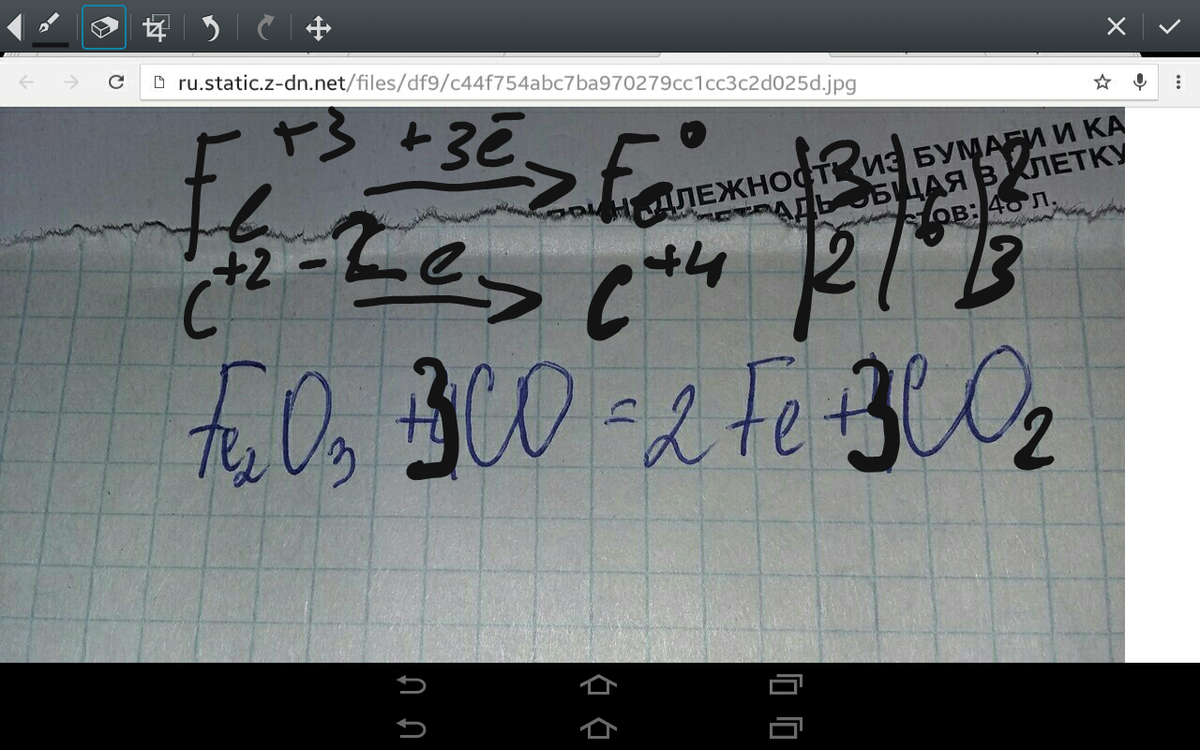 ru.static.z-dn.net/files/df9/c44f754abc7ba970279cc1cc3c2d025d.jpg
ИЗ БУМАГИ И КА
ОБЩАЯ В КЛЕТКУ
48 л.
Fe⁺³ +3ē → Fe⁰ | 3 | 6 | 2
C⁺² -2e → C⁺⁴ | 2 | | 3
Fe₂O₃ + 3CO = 2Fe + 3CO₂